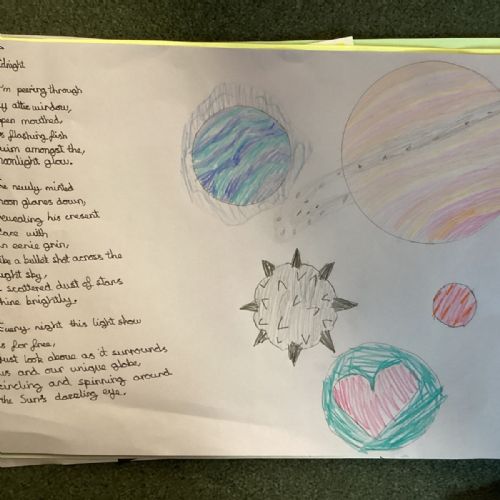 idnight
'm peering through
y attic window,
pen mouthed,
s flashing fish
wim amongst the,
oonlight glow.
he newly misted
oon glares down;
evealing his cresent
ace with
n eerie grin,
ike a bullet shot across the
ight sky,
scattered dust of stars
hine brightly.
Every night this light show
is for free,
Just look above as it surrounds
us and our unique globe,
circling and spinning around
the Suns dazzling eye.